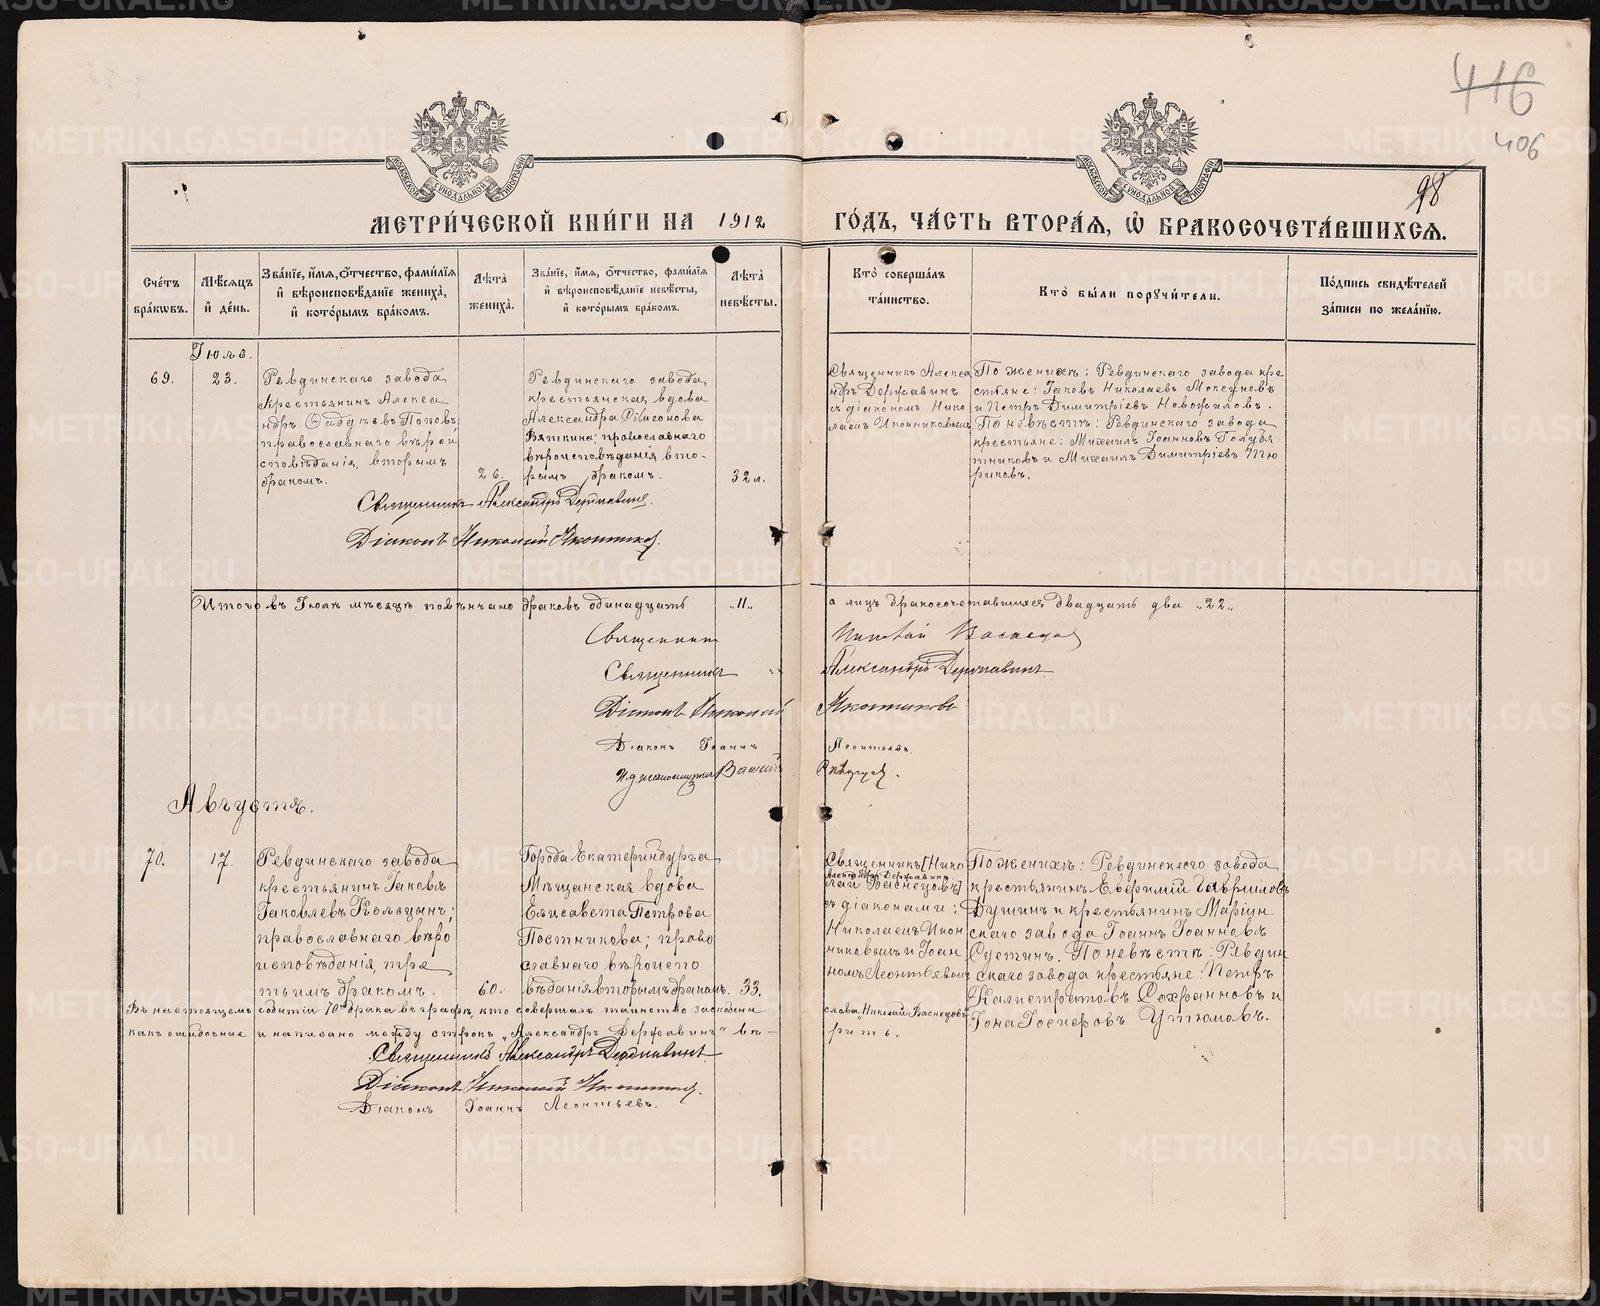 416
406
98
МОСКОВСКОЙ СѴНОДАЛЬНОЙ ТИПОГРАФІИ
МОСКОВСКОЙ СѴНОДАЛЬНОЙ ТИПОГРАФІИ
МЕТРИ́ЧЕСКОЙ КНИ́ГИ НА 1912 ГО́ДЪ, ЧА́СТЬ ВТОРА́Я, Ѡ҆ БРАКОСОЧЕТА́ВШИХСѦ.
Сче́тъ
бра́кѡвъ.
Мѣ́сяцъ
и҆ де́нь.
Зва́нїе, и҆́мя, ѻ҆́тчество, фами́лїя
и҆ вѣроисповѣ́данїе жениха̀,
и҆ кото́рымъ бра́комъ.
Лѣ́та
жениха̀.
Зва́нїе, и҆́мя, ѻ҆́тчество, фами́лїя
и҆ вѣроисповѣ́данїе невѣ́сты,
и҆ кото́рымъ бра́комъ.
Лѣ́та
невѣ́сты.
Кто̀ соверша́лъ
та́инство.
Кто̀ бы́ли порꙋчи́тели.
По́дпись свидѣ́телей
за́писи по жела́нїю.
Іюль.
69.
23.
Ревдинскаго завода
крестьянинъ Алекса
ндръ Ѳаддѣевъ Поповъ;
православнаго вѣрои
сповѣданія, вторымъ
бракомъ.
26.
Ревдинскаго завода,
крестьянская вдова
Александра
Вяткина; православнаго
вѣроисповѣданія вто-
рымъ бракомъ.
32 л.
Священникъ Алекса
ндръ Державинъ
съ діакономъ Нико
лаемъ Иконниковымъ
По женихѣ: Ревдинскаго завода кре
стьяне: Іаковъ Николаевъ Моксуновъ
и Петръ Димитріевъ Новожиловъ.
По невѣстѣ: Ревдинскаго завода
крестьяне: Михаилъ Іоанновъ Голубя
тниковъ и Михаилъ Димитріевъ Тю
риковъ.
Священникъ Александръ Державинъ.
Діаконъ Николай Иконниковъ.
Итого въ Іюлѣ мѣсяцѣ повѣнчано браковъ одинадцать „11„ а лицъ бракосочетавшихся двадцать два „22„
Священникъ Николай Васнецовъ
Священникъ Александръ Державинъ.
Діаконъ Николай Иконниковъ
Діаконъ Іоаннъ Леонтьевъ.
И. д. псаломщика
Августъ.
70.
17.
Ревдинскаго завода
крестьянинъ Іаковъ
Іаковлевъ Кольцынъ;
православнаго вѣро
исповѣданія, тре
тьимъ бракомъ.
60.
Города Екатеринбурга
Мѣщанская вдова
Елисавета Петрова
Постникова; право
славнаго вѣроиспо
вѣданія вторымъ бракомъ.
33.
Священникъ [Нико
Александръ Державинъ
лай Васнецовъ]
съ діаконами:
Николаемъ Икон
никовымъ и Іоан
номъ Леонтьевымъ
По женихѣ: Ревдинскаго завода
крестьянинъ Евфимій Гавриловъ
Душинъ и крестьянинъ Маріин
скаго завода Іоаннъ Іоанновъ
Сустинъ. По невѣстѣ: Ревдин
скаго завода крестьяне: Петръ
Калистратовъ Сохранновъ и
Іона Іосифовъ Утюмовъ.
Въ настоящемъ событіи 70го брака въ графѣ, кто совершалъ таинство зачеркнены слова „Николай Васнецовъ
какъ ошибочные и написано между строкъ „Александръ Державинъ“ вѣ- рить.
Священникъ Александръ Державинъ.
Діаконъ Николай Иконниковъ.
Діаконъ Іоаннъ Леонтьевъ.
METRIKI.GASO-URAL.RU